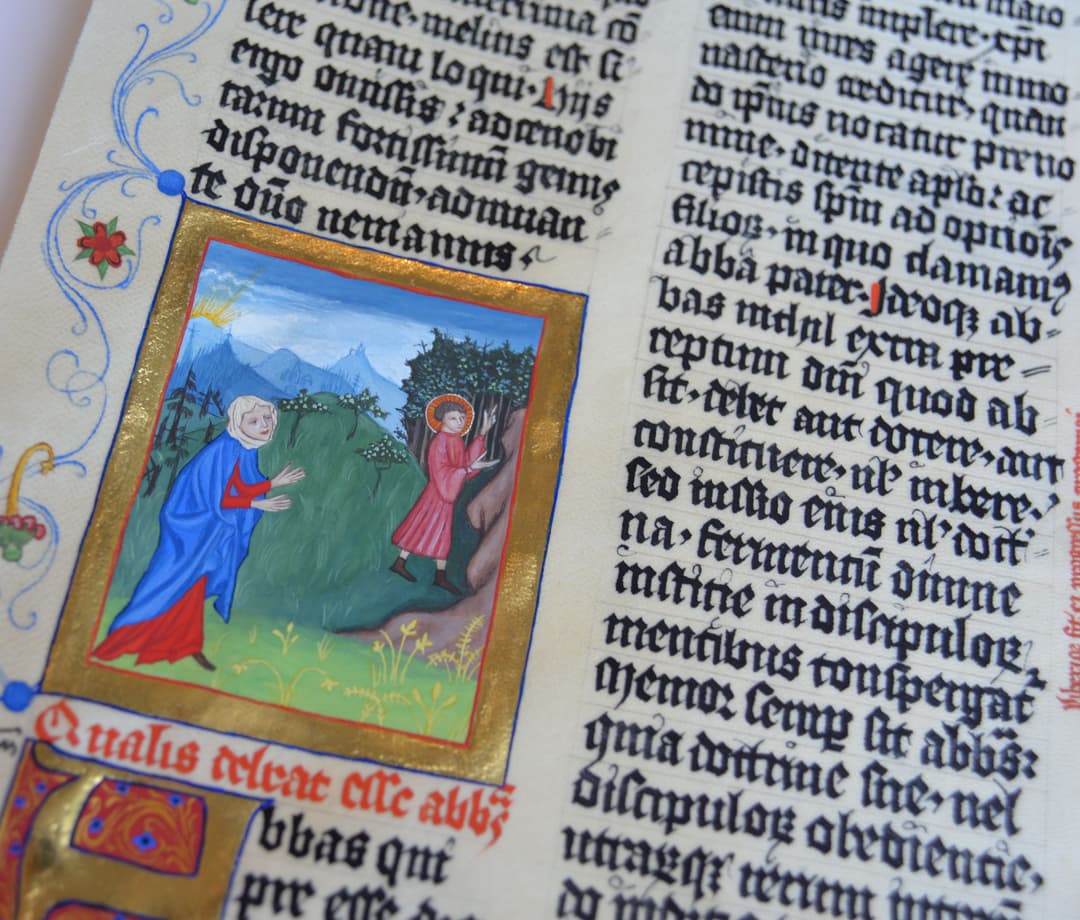 melius est si
lere quam loqui. Hijs
ergo omissis: ad cenobi
tarum fortissimū genus
disponendū, adiuuan
te dño ueniamus
Qualis debeat esse abbs
bbas qui
pre esse
implere. xp̄i
enim uices agere in mo
nasterio creditur, quan
do ip̄ius uocatur preno
mine, dicente aplō: ac
cepistis sp̄m adoptiōis
filioꝝ, in quo clamamꝰ
abba pater. Ideoqꝫ ab-
bas nichil extra pre-
ceptum dn̄i quod ab
sit, debet aut docere, aut
constituere, ul' iubere,
sed iussio eius ul' doct
na, fermentū diuine
iusticie in discipuloꝝ
mentibus conspergat
Memor semꝑ sit abbs:
quia doctrine sue, uel
discipuloꝝ obediencie,
utrarꝫqꝫ rerum